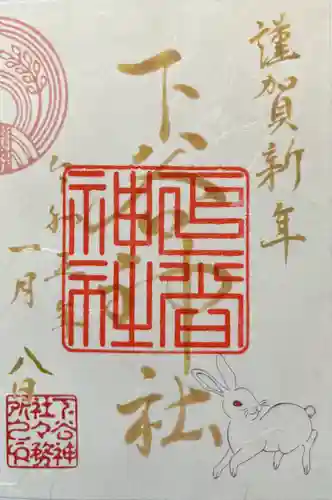 謹賀新年
下谷神社
令和五年
一月八日
下谷
神社
下谷神
社々務
所之印